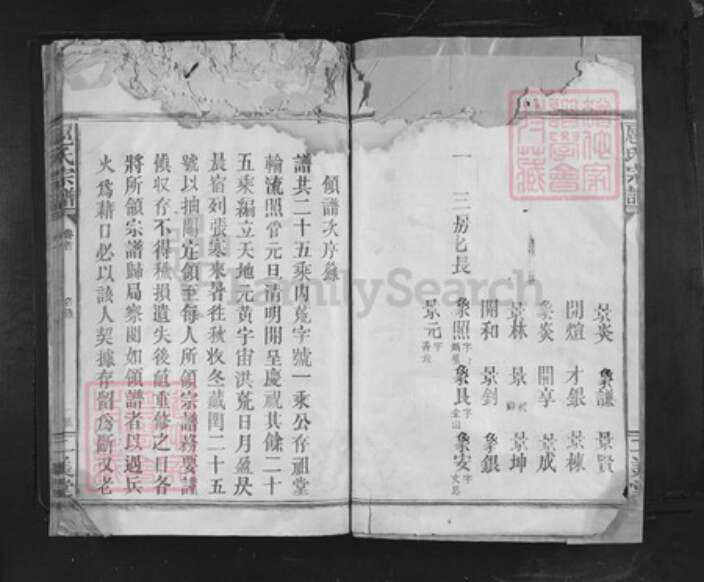 氏宗譜
景炎 象謙 景賢
開煊 才銀 景棟
象炎 開享 景成
景林 景 景坤
開和 景釗 象銀
一 三房匕長 象照 字 象具 字金山 象安 字文思
景元 字善
領譜次序錄
譜共二十五乘內荒字號一乘公存祖堂
輪流照管元旦清明開呈慶祝其餘二十
五乘編立天地元黃宇宙洪荒日月盈昃
辰宿列張寒來暑往秋收冬藏閏二十五
號以抽鬮定領至每人所領宗譜務要謹
慎收存不得穢損遺失後值重修之日各
將所領宗譜歸局察閱如領譜者以遇兵
火為藉口必以該人契據存留為斷又老
氏宗譜
FamilySearch